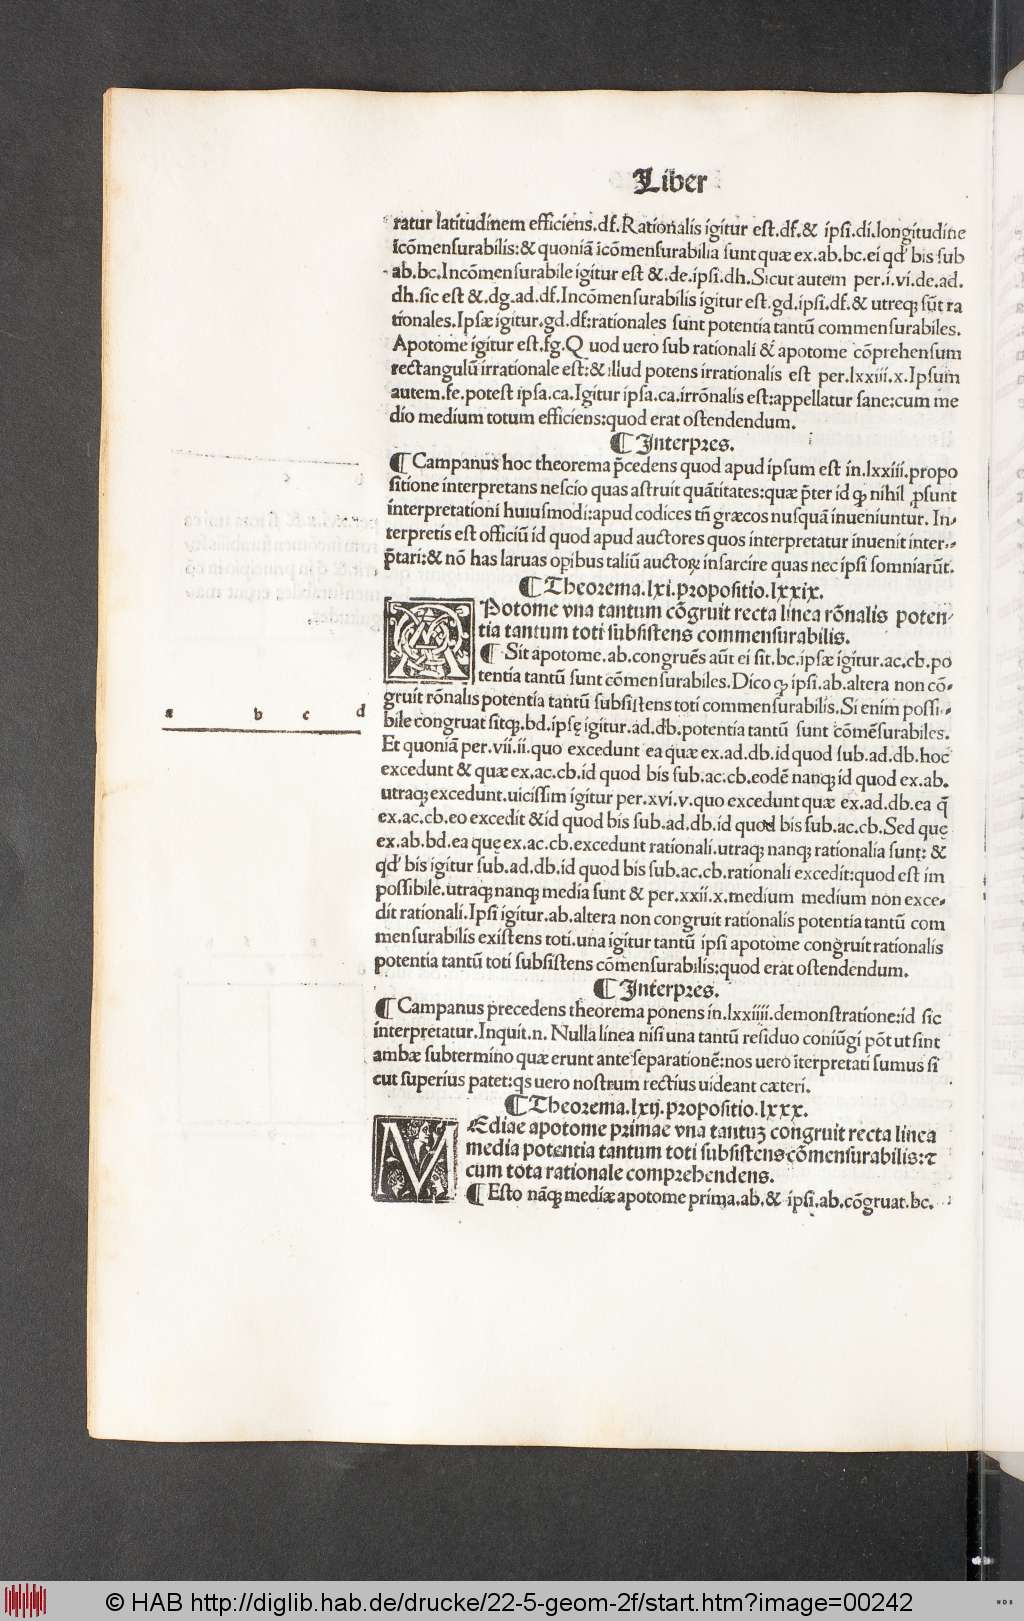 Liber
ratur latitudinem efficiens.df.Rationalis igitur est.df.& ipsi.di.longitudine
icõmensurabilis:& quoniã icõmensurabilia sunt quæ ex.ab.bc.ei qd' bis sub
ab.bc.Incõmensurabile igitur est &.de.ipsi.dh.Sicut autem per.i.vi.de.ad.
dh.sic est &.dg.ad.df.Incõmensurabilis igitur est.gd.ipsi.df.& utreqꝫ sũt ra
tionales.Ipsæ igitur.gd.df:rationales sunt potentia tantũ commensurabiles.
Apotome igitur est.fg.Quod uero sub rationali & apotome cõprehensum
rectangulũ irrationale est:& illud potens irrationalis est per.lxxiii.x.Ipsum
autem.fe.potest ipsa.ca.Igitur ipsa.ca.irrõnalis est:appellatur sane:cum me
dio medium totum efficiens:quod erat ostendendum.
¶ Interpres.
¶ Campanus hoc theorema p̃cedens quod apud ipsum est in.lxxiii.propo
sitione interpretans nescio quas astruit quãtitates:quæ p̃ter id qꝫ nihil ꝓsunt
interpretationi huiusmodi:apud codices tñ græcos nusquã inueniuntur. In-
terpretis est officiũ id quod apud auctores quos interpretatur inuenit inter-
p̃tari:& nõ has laruas opibus taliũ auctoꝝ insarcire quas nec ipsi somniarũt.
¶ Theorema.lxi.propositio.lxxix.
APotome vna tantum cõgruit recta linea rõnalis poten-
tia tantum toti subsistens commensurabilis.
¶ Sit apotome.ab.congruẽs aũt ei sit.bc.ipsæ igitur.ac.cb.po
tentia tantũ sunt cõmensurabiles.Dico qꝫ ipsi.ab.altera non cõ-
gruit rõnalis potentia tantũ subsistens toti commensurabilis.Si enim possi-
a b c d
bile congruat sitqꝫ.bd.ipsę igitur.ad.db.potentia tantũ sunt cõmẽsurabiles.
Et quoniã per.vii.ii.quo excedunt ea quæ ex.ad.db.id quod sub.ad.db.hoc
excedunt & quæ ex.ac.cb.id quod bis sub.ac.cb.eodẽ nanqꝫ id quod ex.ab.
utraqꝫ excedunt.uicissim igitur per.xvi.v.quo excedunt quæ ex.ad.db.ea q̃
ex.ac.cb.eo excedit &id quod bis sub.ad.db.id quod bis sub.ac.cb.Sed quę
ex.ab.bd.ea quę ex.ac.cb.excedunt rationali.utraqꝫ nanqꝫ rationalia sunt: &
qd' bis igitur sub.ad.db.id quod bis sub.ac.cb.rationali excedit:quod est im
possibile.utraqꝫ nanqꝫ media sunt & per.xxii.x.medium medium non exce-
dit rationali.Ipsi igitur.ab.altera non congruit rationalis potentia tantũ com
mensurabilis existens toti.una igitur tantũ ipsi apotome congruit rationalis
potentia tantũ toti subsistens cõmensurabilis:quod erat ostendendum.
¶ Interpres.
¶ Campanus precedens theorema ponens in.lxxiiii.demonstratione:id sic
interpretatur.Inquit.n. Nulla linea nisi una tantũ residuo coniũgi põt ut sint
ambæ subtermino quæ erunt ante separationẽ:nos uero ĩterpretati sumus si
cut superius patet:qs uero nostrum rectius uideant cæteri.
¶ Theorema.lxij.propositio.lxxx.
MEdiae apotome primae vna tantuꝫ congruit recta linea
media potentia tantum toti subsistens cõmensurabilis:⁊
cum tota rationale comprehendens.
¶ Esto nãqꝫ mediæ apotome prima.ab.& ipsi.ab.cõgruat.bc.
© HAB http://diglib.hab.de/drucke/22-5-geom-2f/start.htm?image=00242